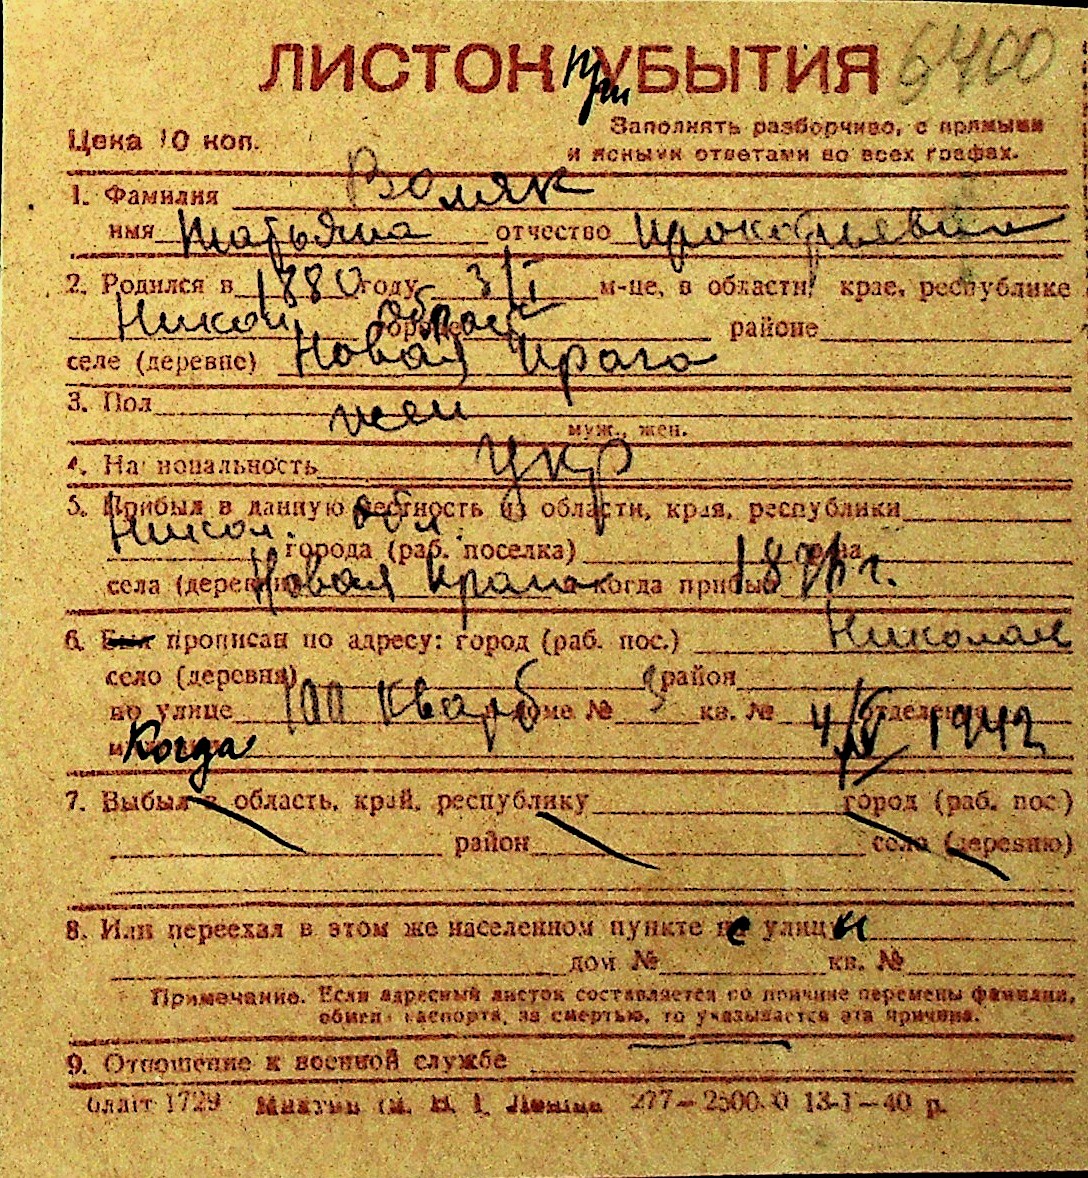 ЛИСТОК при УБЫТИЯ 6400
Цена 10 коп.
Заполнять разборчиво, с прямыми
и ясными ответами во всех графах.
1. Фамилия Воляк
имя Татьяна отчество Прокофьевна
2. Родился в 1880 году 3/I м-це, в области, крае, республике
Никол. Област городе районе
селе (деревне) Новая Прага
3. Пол жен
муж., жен.
4. Национальность Укр
5. Прибыл в данную местность из области, края, республики
Никол. обл. города (раб. поселка)
села (деревни) Новая Прага когда прибыл г.
6. Был прописан по адресу: город (раб. пос.) Николаев
село (деревня) район
по улице 100 Кварт доме № 3 кв. № отделения
Когда 4/IV 1942
7. Выбыл в область, край, республику город (раб. пос.)
район село (деревню)
8. Или переехал в этом же населенном пункте с улицы
дом № кв. №
Примечание. Если адресный листок составляется по причине перемены фамилии,
обмена паспорта, за смертью, то указывается эта причина.
9. Отношение к военной службе
1729 Ленина 277—2500.0 13-I—40 р.